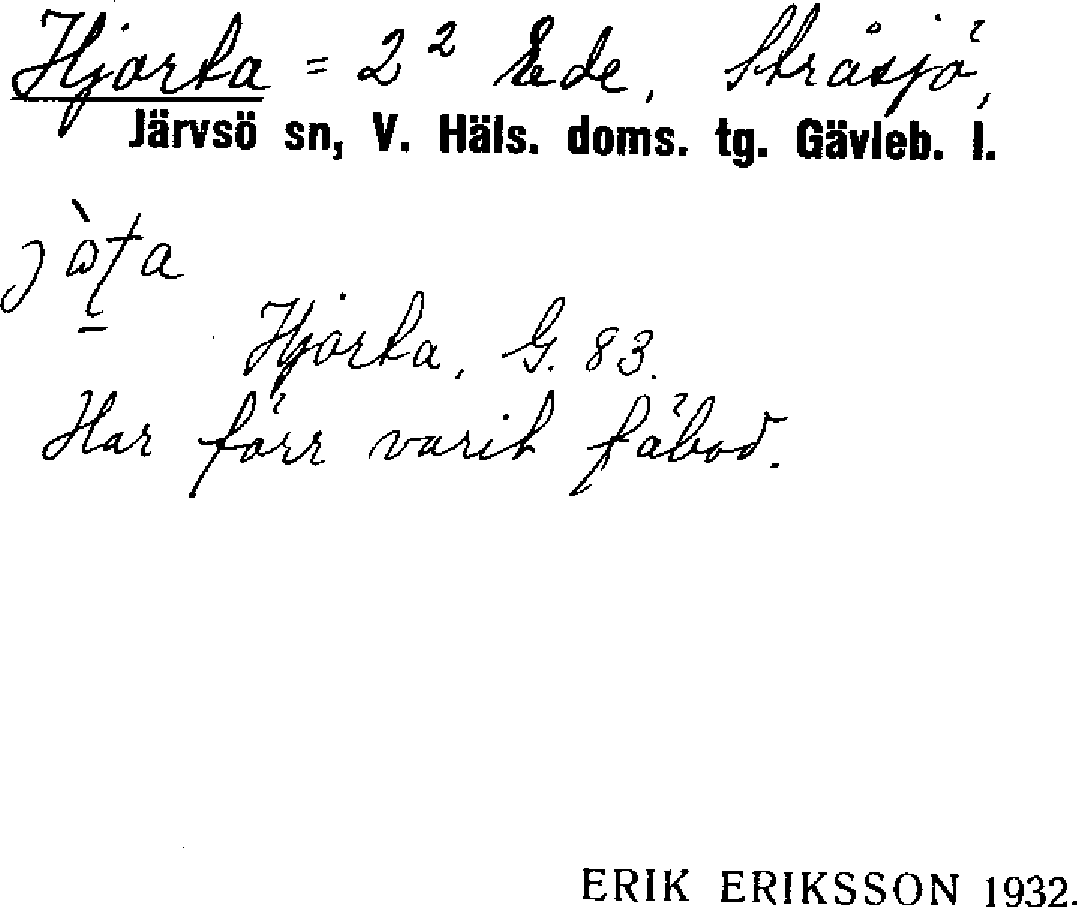 Hjorta = 2² Ede, Stråsjö,
Järvsö sn, V. Häls. doms. tg. Gävleb. l.
Hjorta, G. 83.
Har förr varit fäbod.
ERIK ERIKSSON 1932.